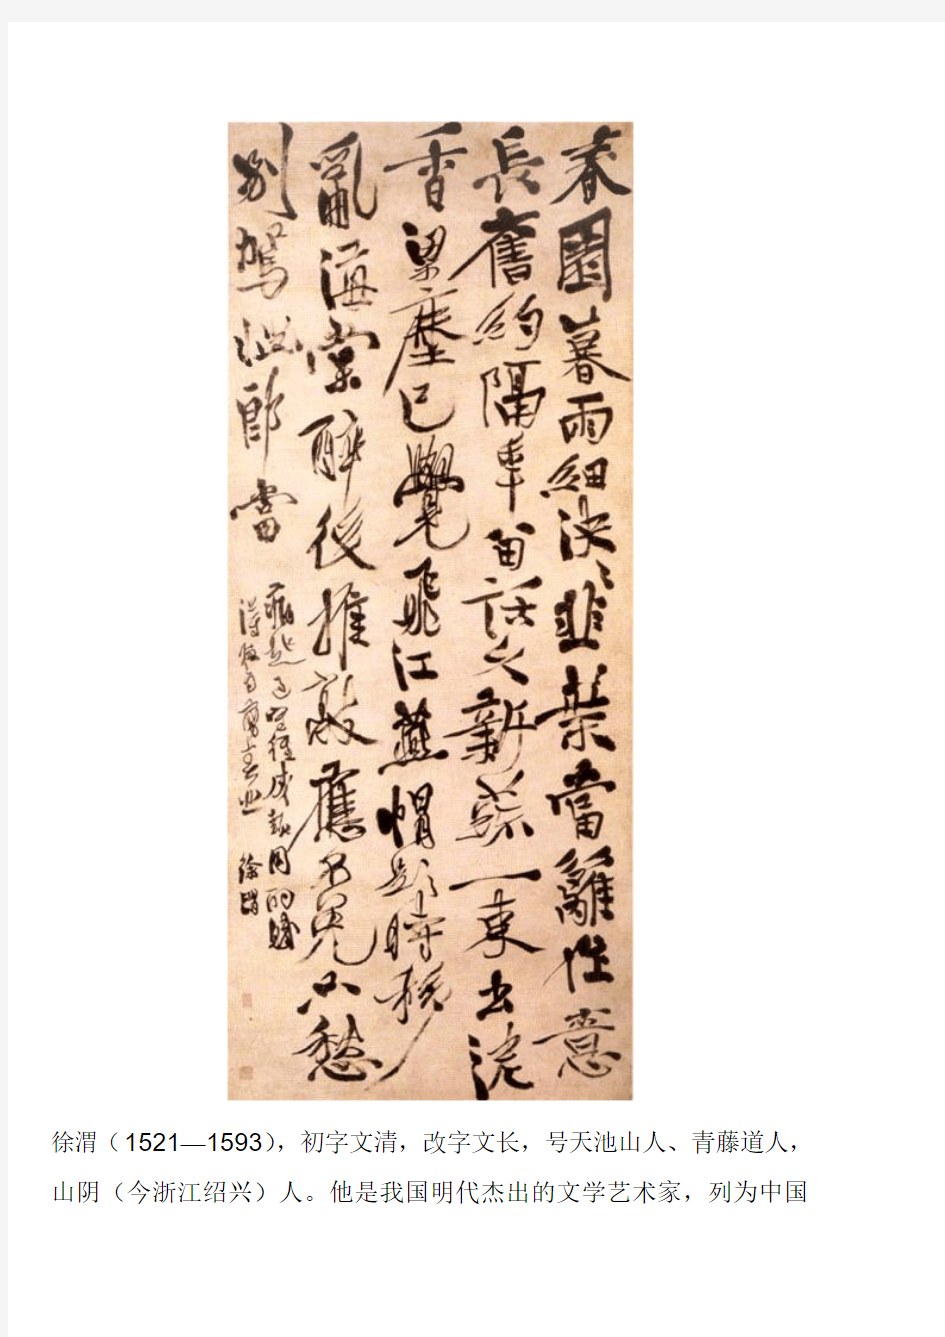 春園暮雨細泱〻韭葉當籬作意
長舊約隔年留話久新蔬一束出泥
香梁塵已覺飛江燕帽影時移
亂海棠醉後推敲應不免只愁
別駕惱郎當
徐渭
徐渭（1521—1593），初字文清，改字文长，号天池山人、青藤道人，
山阴（今浙江绍兴）人。他是我国明代杰出的文学艺术家，列为中国